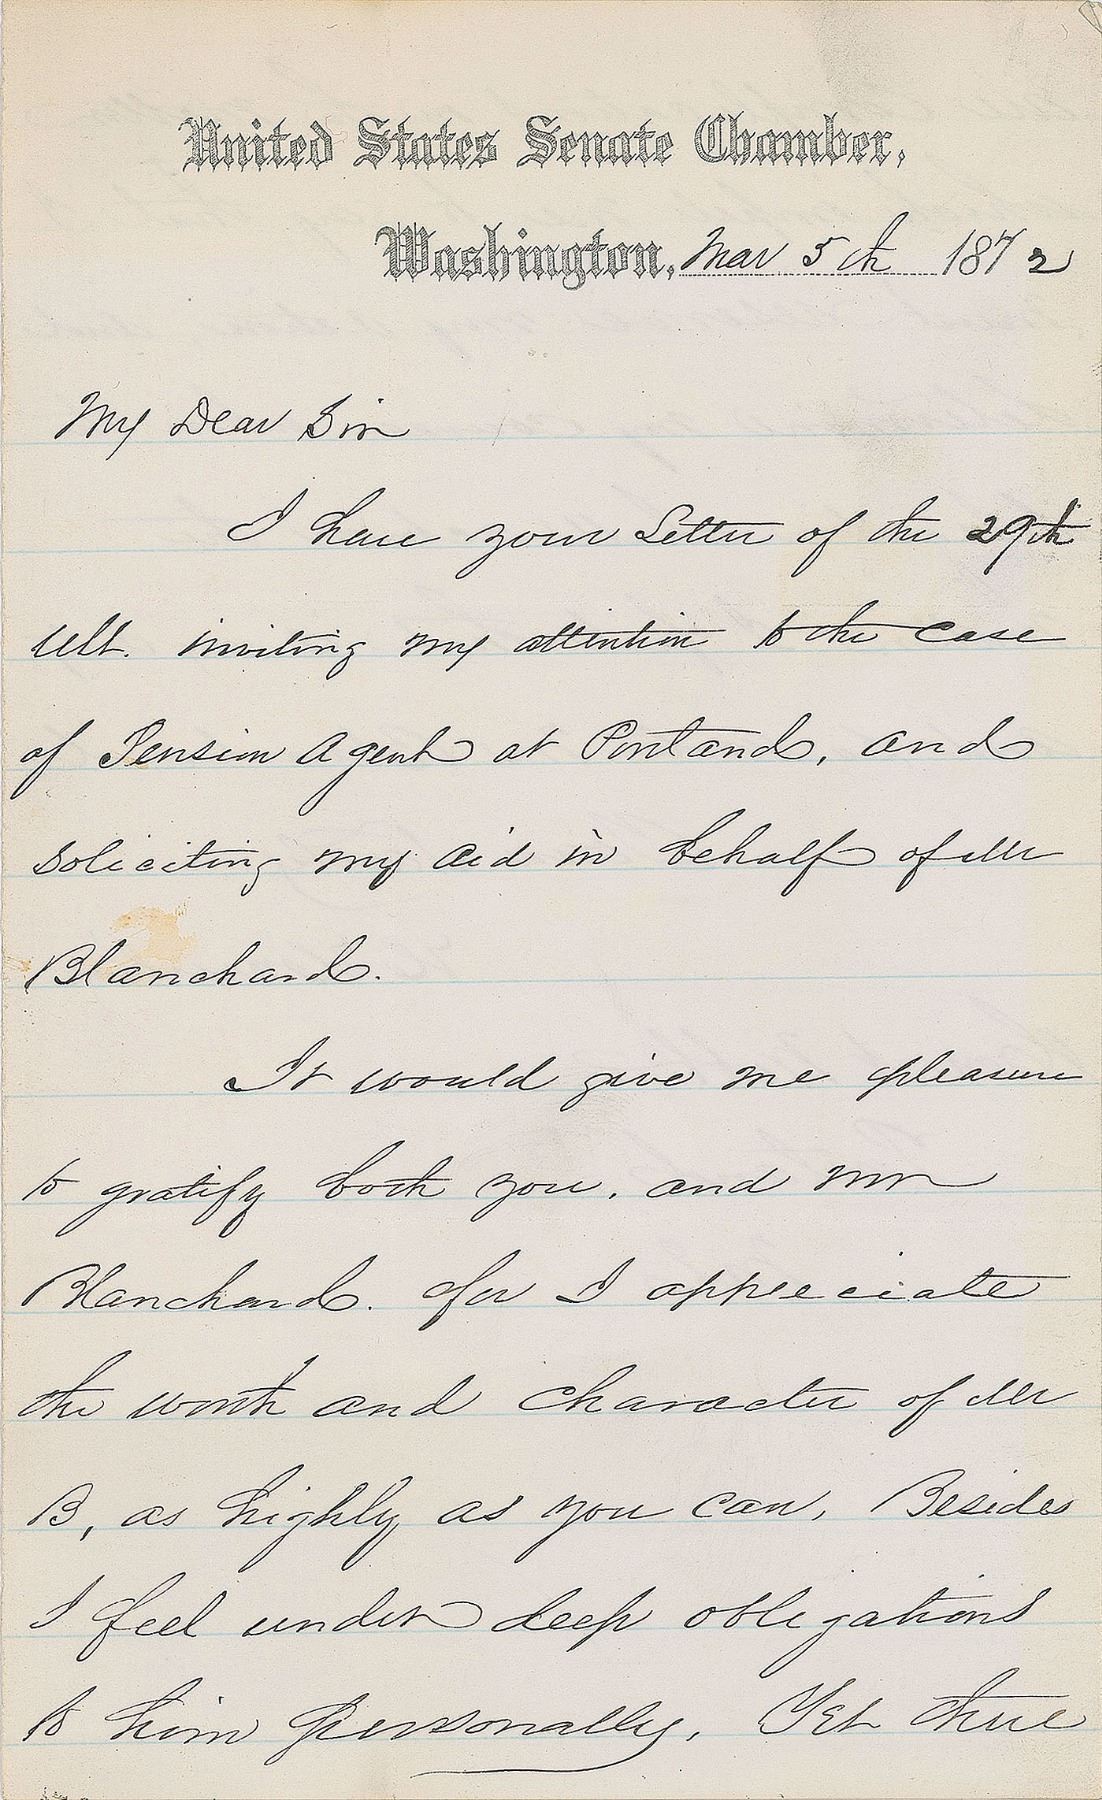 United States Senate Chamber,
Washington, Mar 5th 1872
My Dear Sir
I have your Letter of the 29th
ult. inviting my attention to the case
of Pension Agent at Portland, and
soliciting my aid in behalf of Mr
Blanchard.
It would give me pleasure
to gratify both you, and Mr
Blanchard. for I appreciate
the worth and character of Mr
B, as highly as you can, Besides
I feel under deep obligations
to him personally, Yet there